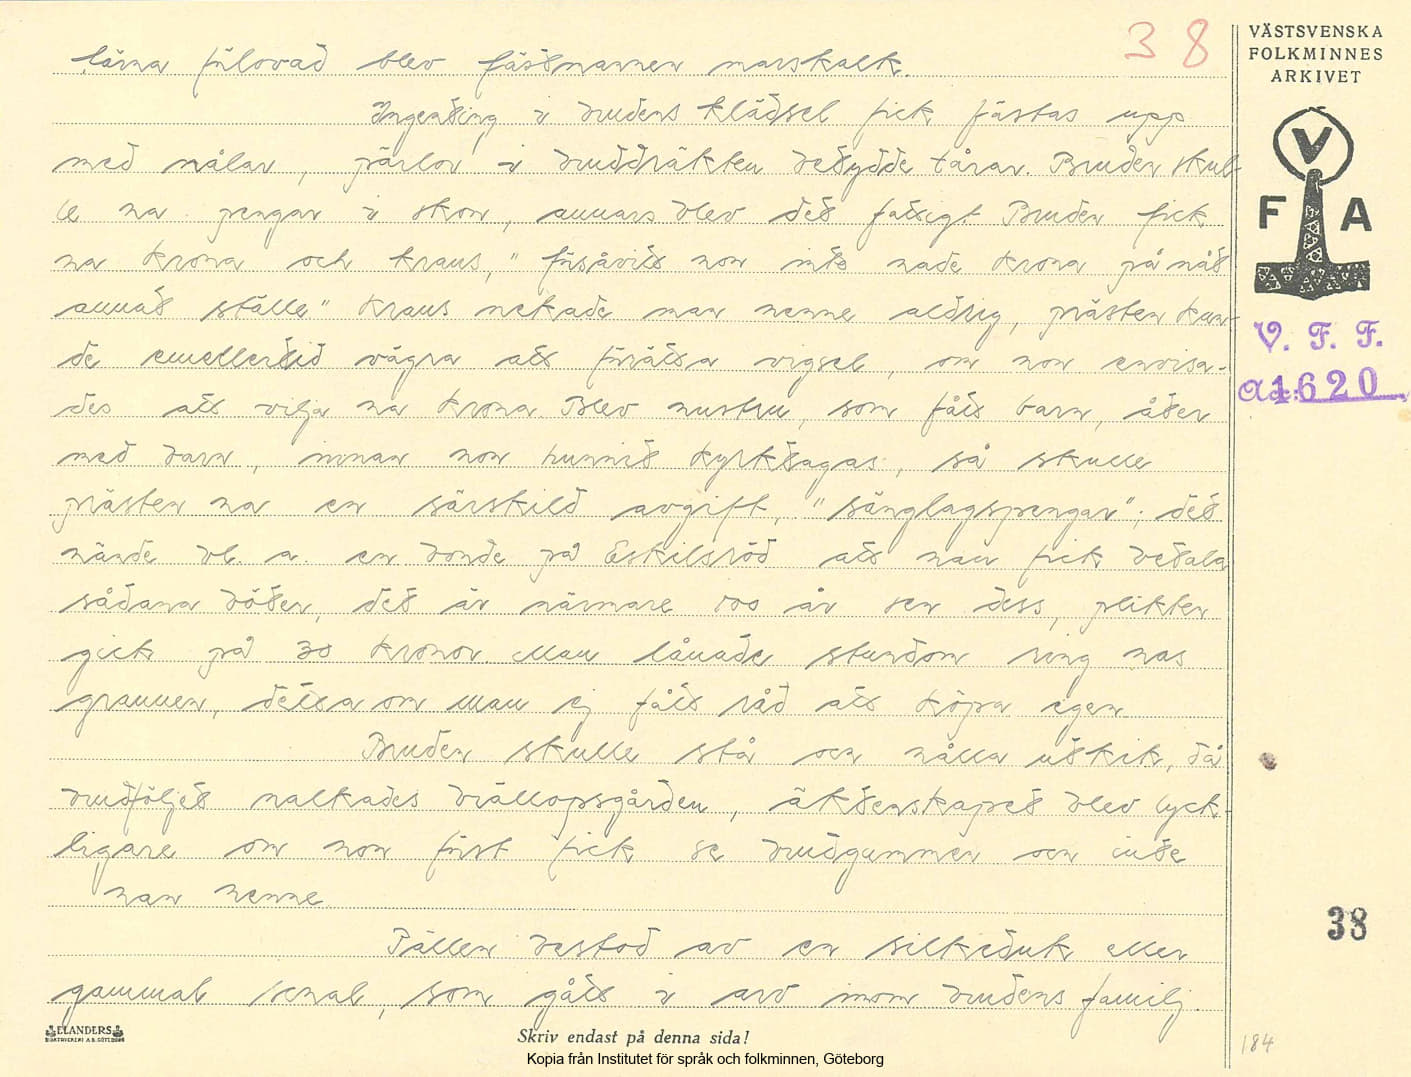 lärna fúlovad blev fästmannen marskalk.
38
Ingenting i brudens klädsel fick fästas upp
med nålar, pärlor i bruddräkten betydde tårar. Bruden skul-
le ha pengar i skon, annars blev det fattigt. Bruden fick
ha krona och krans, "försåvitt hon inte hade krona på nåt
annat ställe" Krans nekade man henne aldrig, prästen kun-
de emellertid vägra att förrätta vigsel, om hon envisa-
des att vilja ha krona. Blev hustru, som fått barn, åter
med barn, innan hon hunnit kyrktagas, så skulle
prästen ha en särskild avgift, "sänglagspengar"; det
hände bl. a. en bonde på Eskilsröd att han fick betala
sådana böter, det är närmare 100 år sen dess, plikten
gick på 30 kronor. Man lånade stundom ring hos
grannen, detta om man ej fått råd att köpa egen.
Bruden skulle stå och hålla utkik, då
brudföljet nalkades bröllopsgården, äktenskapet blev lyck-
ligare om hon först fick se brudgummen och inte
han henne.
Pällen bestod av en silkeduk eller
gammal schal, som gått i arv inom brudens familj.
VÄSTSVENSKA
FOLKMINNES
ARKIVET
V
F A
V. F. F.
Acc. 1620
38
184
ELANDERS
BOKTRYCKERI A.B. GÖTEBORG
Skriv endast på denna sida!
Kopia från Institutet för språk och folkminnen, Göteborg